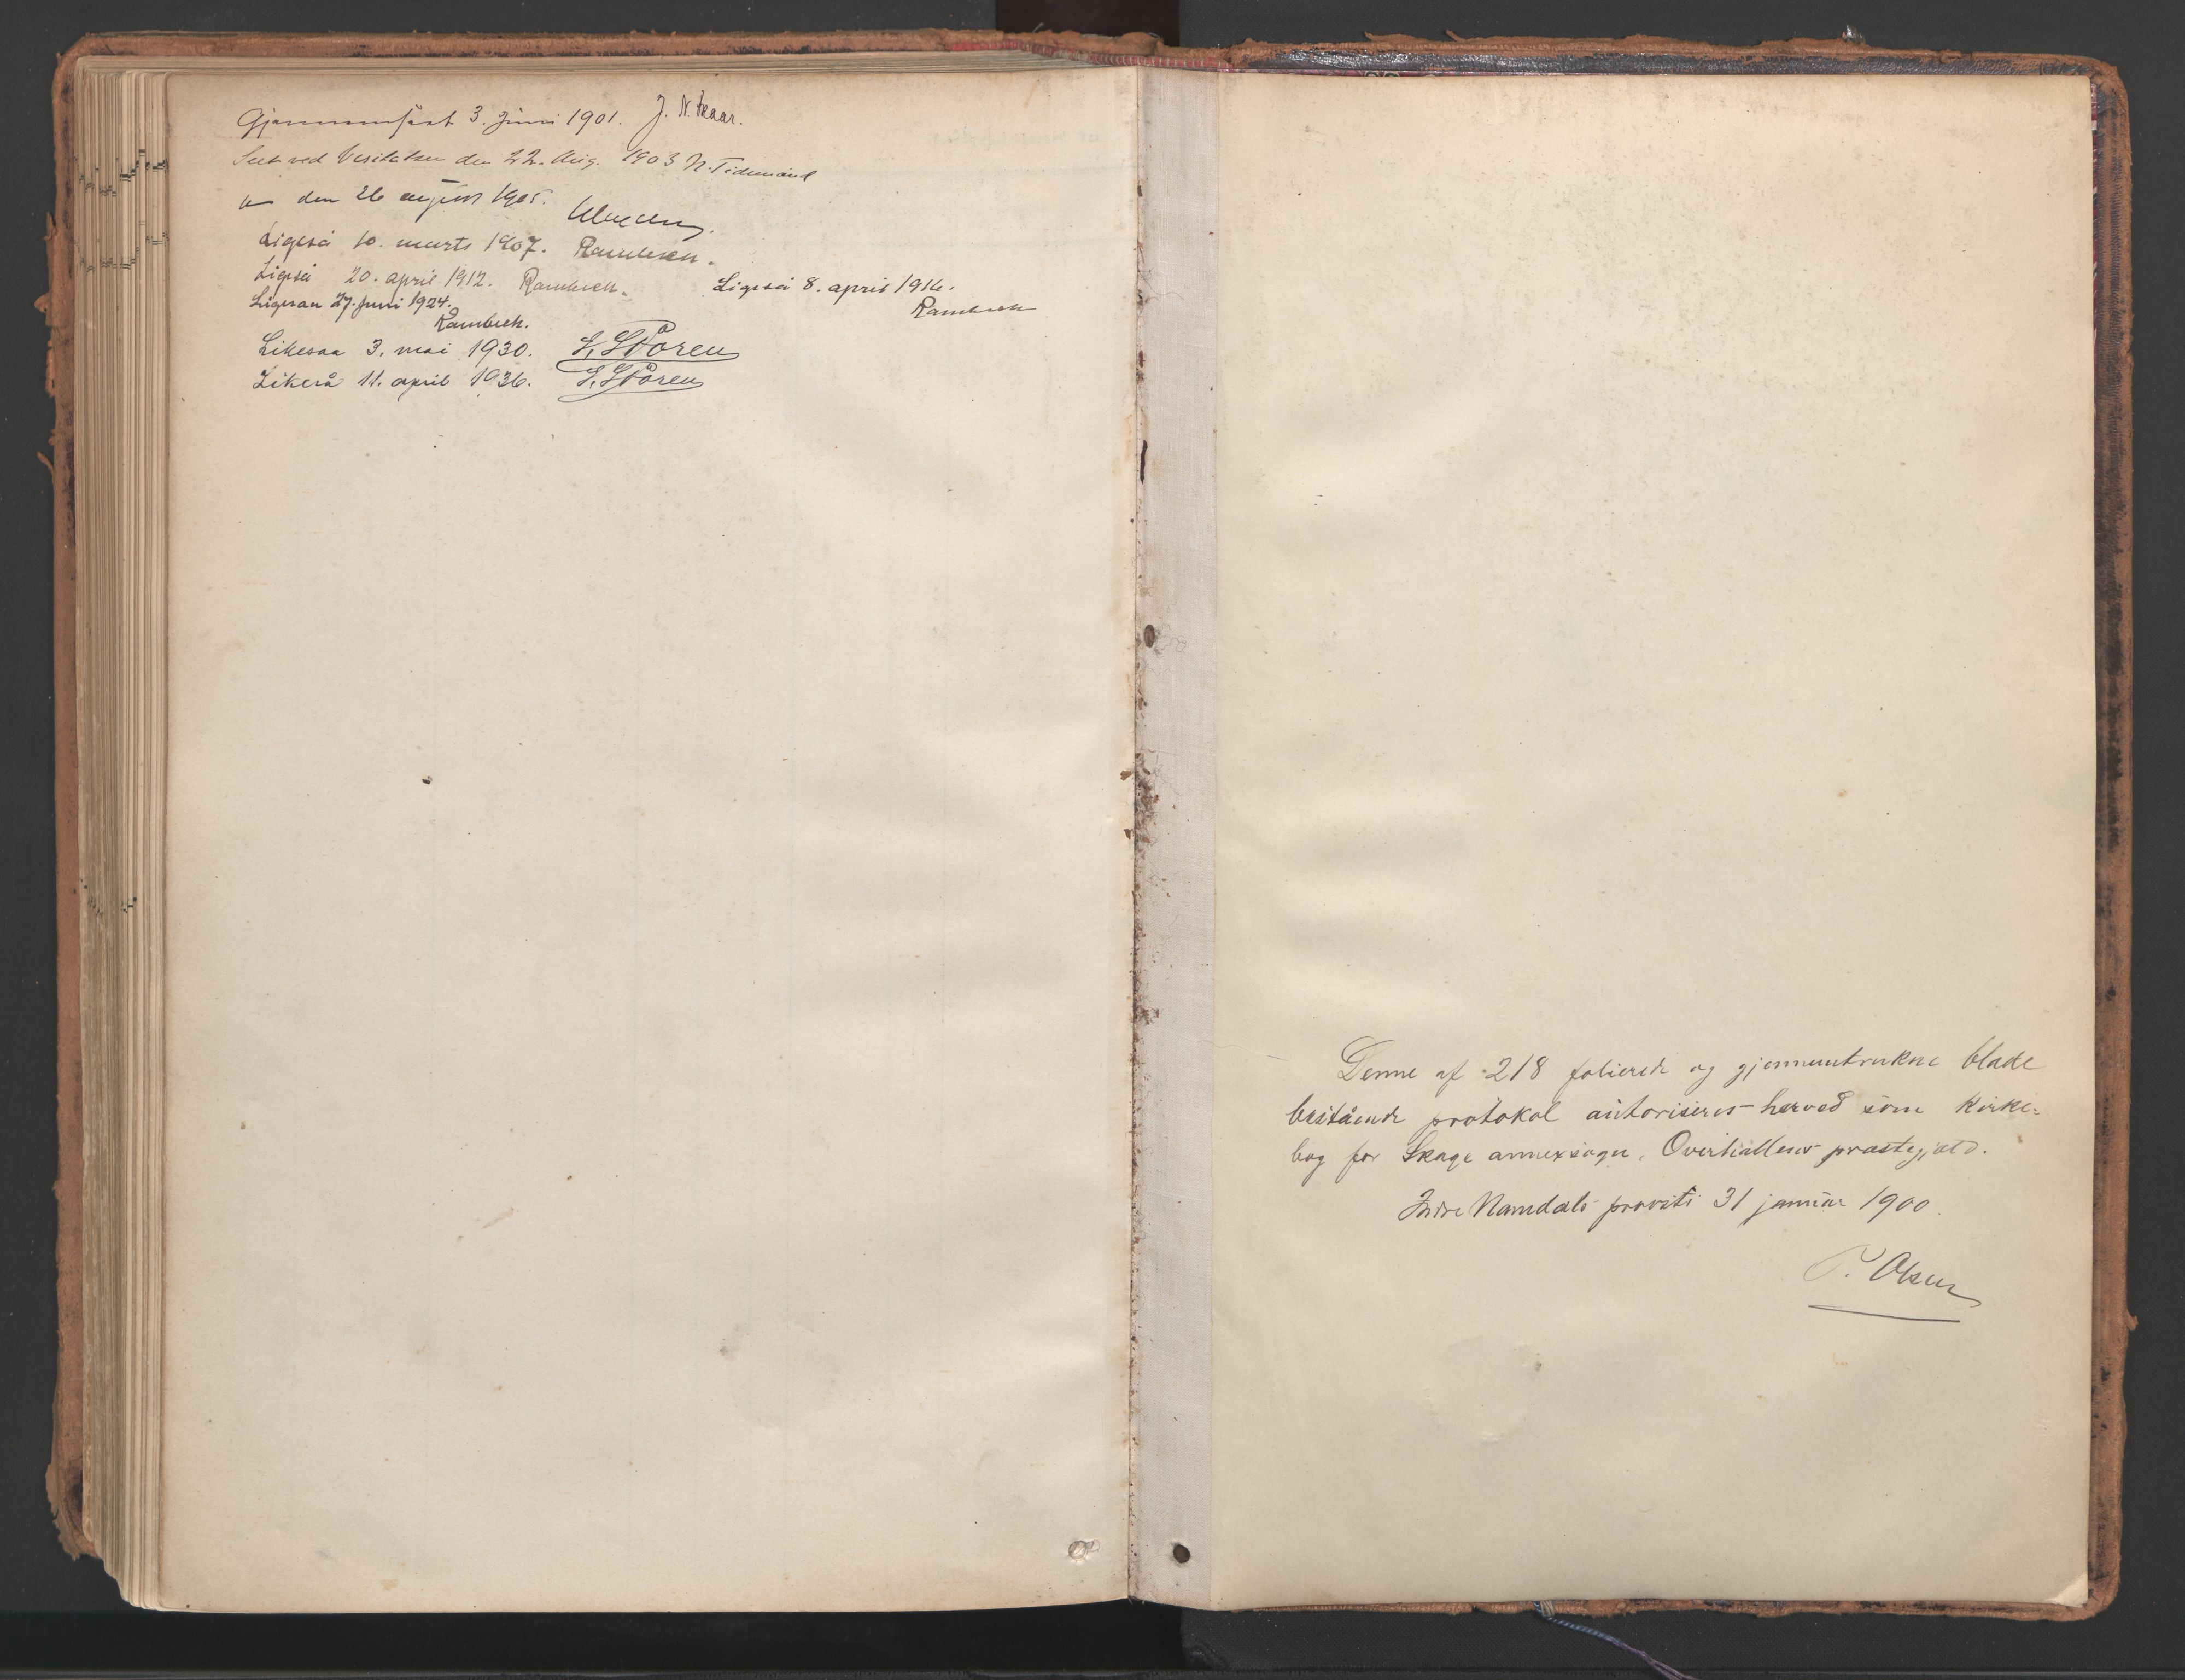 Gjennemseet 3. Juni 1901. J. N. Skaar.
Seet ved Visitatsen den 22. Aug. 1903 N. Tidemand
den 26 august 1905.
Ligeså 10. marts 1907. Rambech.
Ligeså 20. april 1912. Rambech. Ligeså 8. april 1916.
Rambech
Ligesaa 27. juni 1924.
Rambech.
Likesaa 3. mai 1930. S. Støren
Likeså 11. april 1936. S. Støren
Denne af 218 folierede og gjennemtrukne blade
bestående protokol autoriseres herved som kirke-
bog for Skage annexsogn, Overhallens præstegjeld.
Indre Namdals provsti 31 januar 1900.
P. Olsen